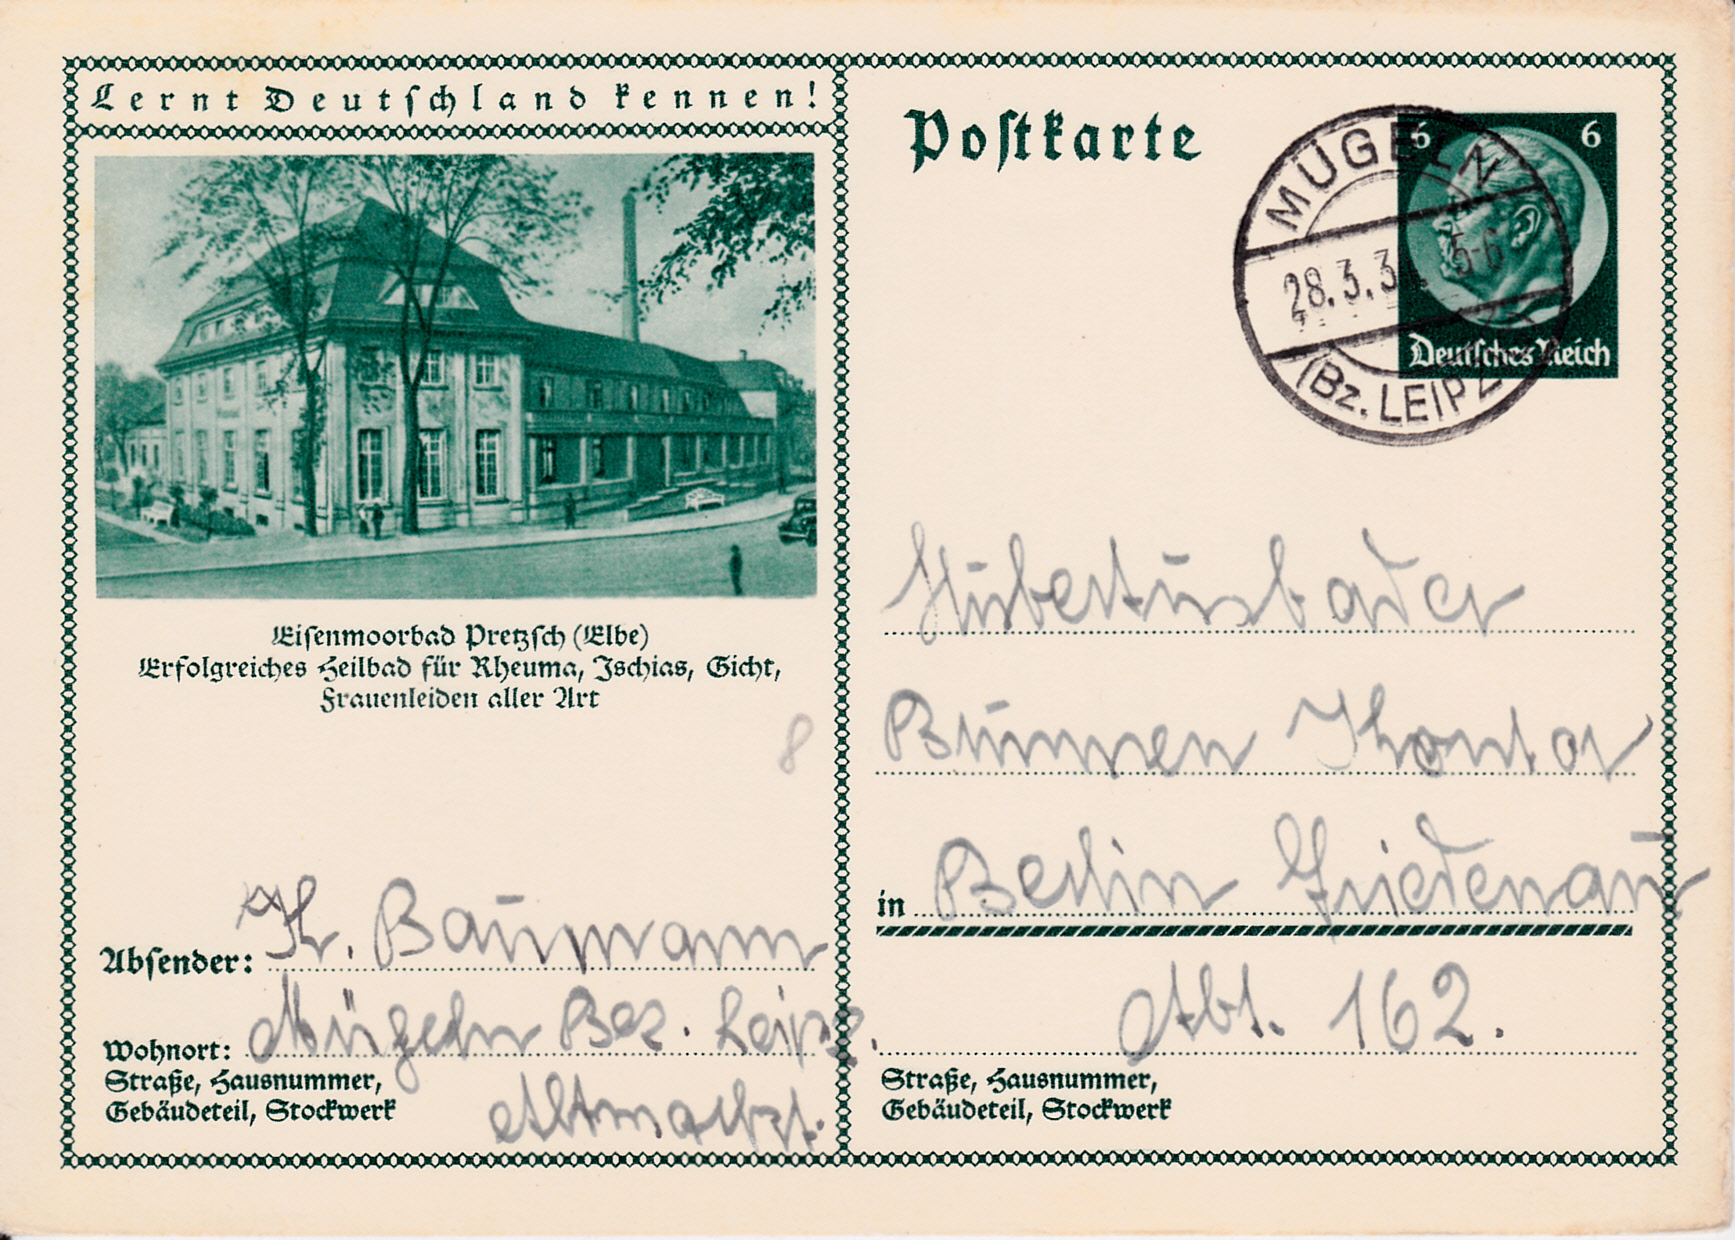 Lernt Deutschland kennen!
Eisenmoorbad Pretzsch (Elbe)
Erfolgreiches Heilbad für Rheuma, Ischias, Gicht,
Frauenleiden aller Art
8
Absender: Baumann
Wohnort: Mügeln Bez. Leipz.
Straße, Hausnummer,
Gebäudeteil, Stockwerk
Altmarkt.
Postkarte
6 6
Deutsches Reich
MÜGELN
28.3.3 5-6
(Bz. LEIPZ
Hubertusbader
Brunnen Khontor
in Berlin Friedenau
Abt. 162.
Straße, Hausnummer,
Gebäudeteil, Stockwerk